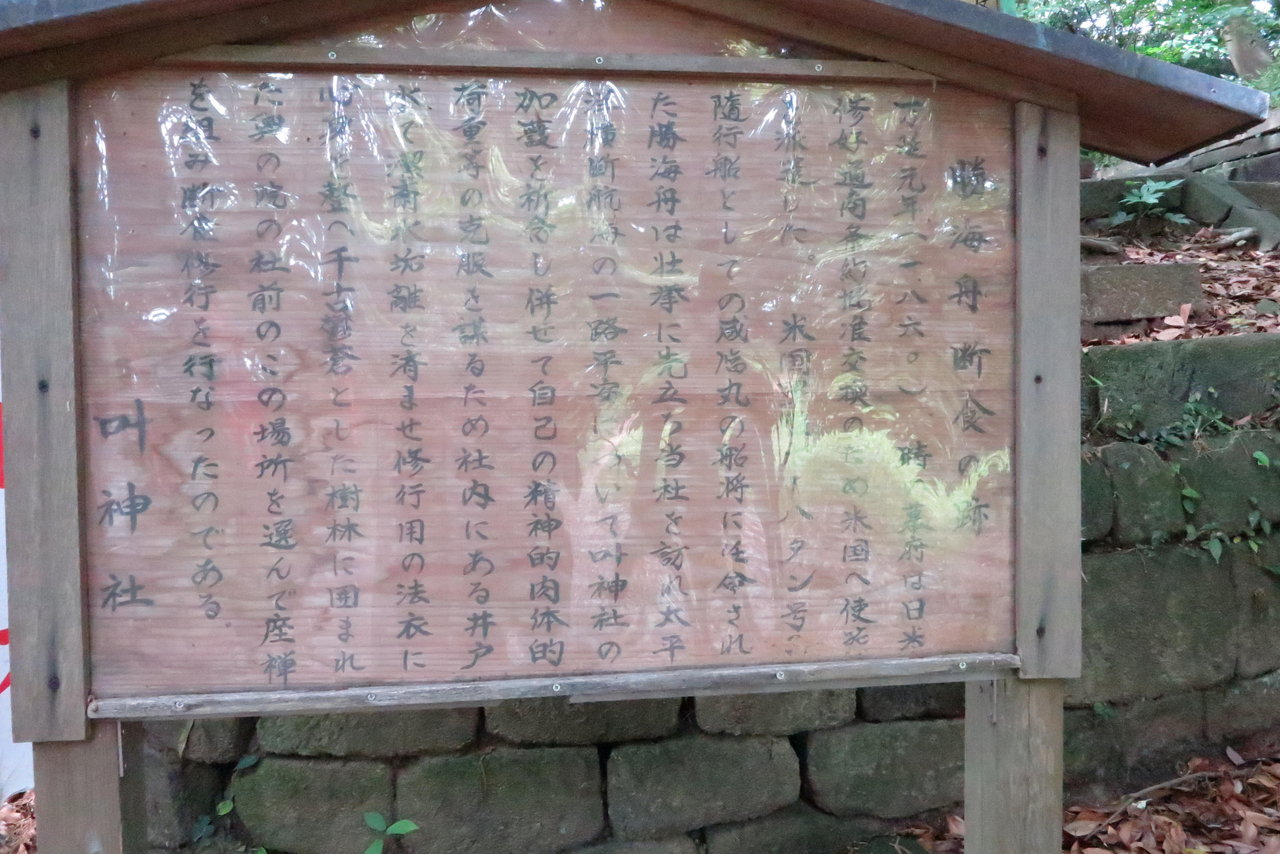 勝海舟断食の跡
万延元年（一八六〇）時の幕府は日米
修好通商条約批准交換のため米国へ使
派遣した。米国 タン号
随行船としての咸臨丸の船将に任命され
た勝海舟は壮挙に先立ち当社を訪れ太平
洋横断航海の一路平安について叫神社の
加護を祈念し併せて自己の精神的肉体的
荷重等の克服を謀るため社内にある井戸
水て潔斎水垢離を済ませ修行用の法衣に
を整へ千古鬱蒼とした樹林に囲まれ
た興の院の社前のこの場所を選んで座禅
を組み断食修行を行なったのである。
叫神社